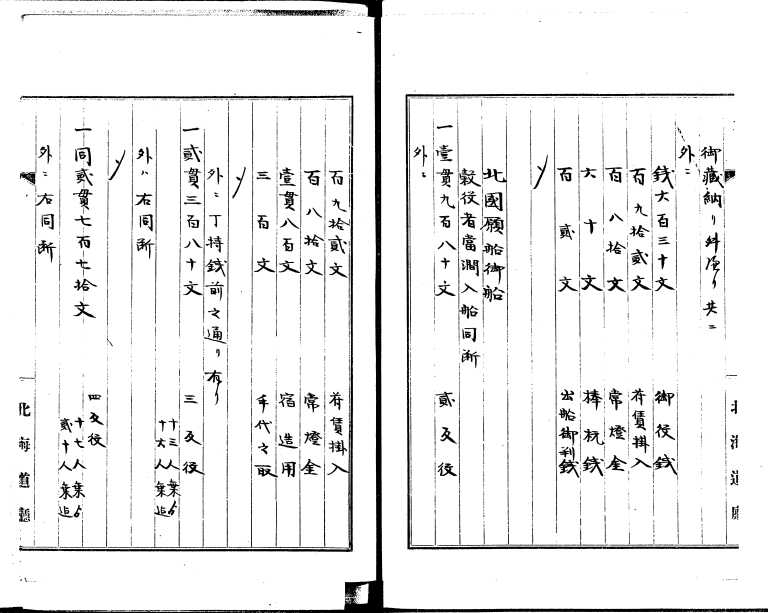 御藏納り斜渡り共ニ
外ニ
錢六百三十文 御役錢
百九拾貳文 荷賃掛入
百八拾文 常燈金
六十文 棒杭錢
百貳文 出船御利錢
〆
北國願船御船
穀役者當澗入船同断
一壹貫九百八十文 貳反役
外ニ
百九拾貳文 荷賃掛入
百八拾文 常燈金
壹貫八百文 宿造用
三百文 手代之取
〆
外ニ丁持錢前之通り有り
一貳貫三百八十文 三反役
十三人乗ゟ
十六人乗迄
外ハ右同断
〆
一同貳貫七百七拾文 四反役
十七人乗ゟ
貳十人乗迄
外ニ右同断
北海道廳
北海道廳